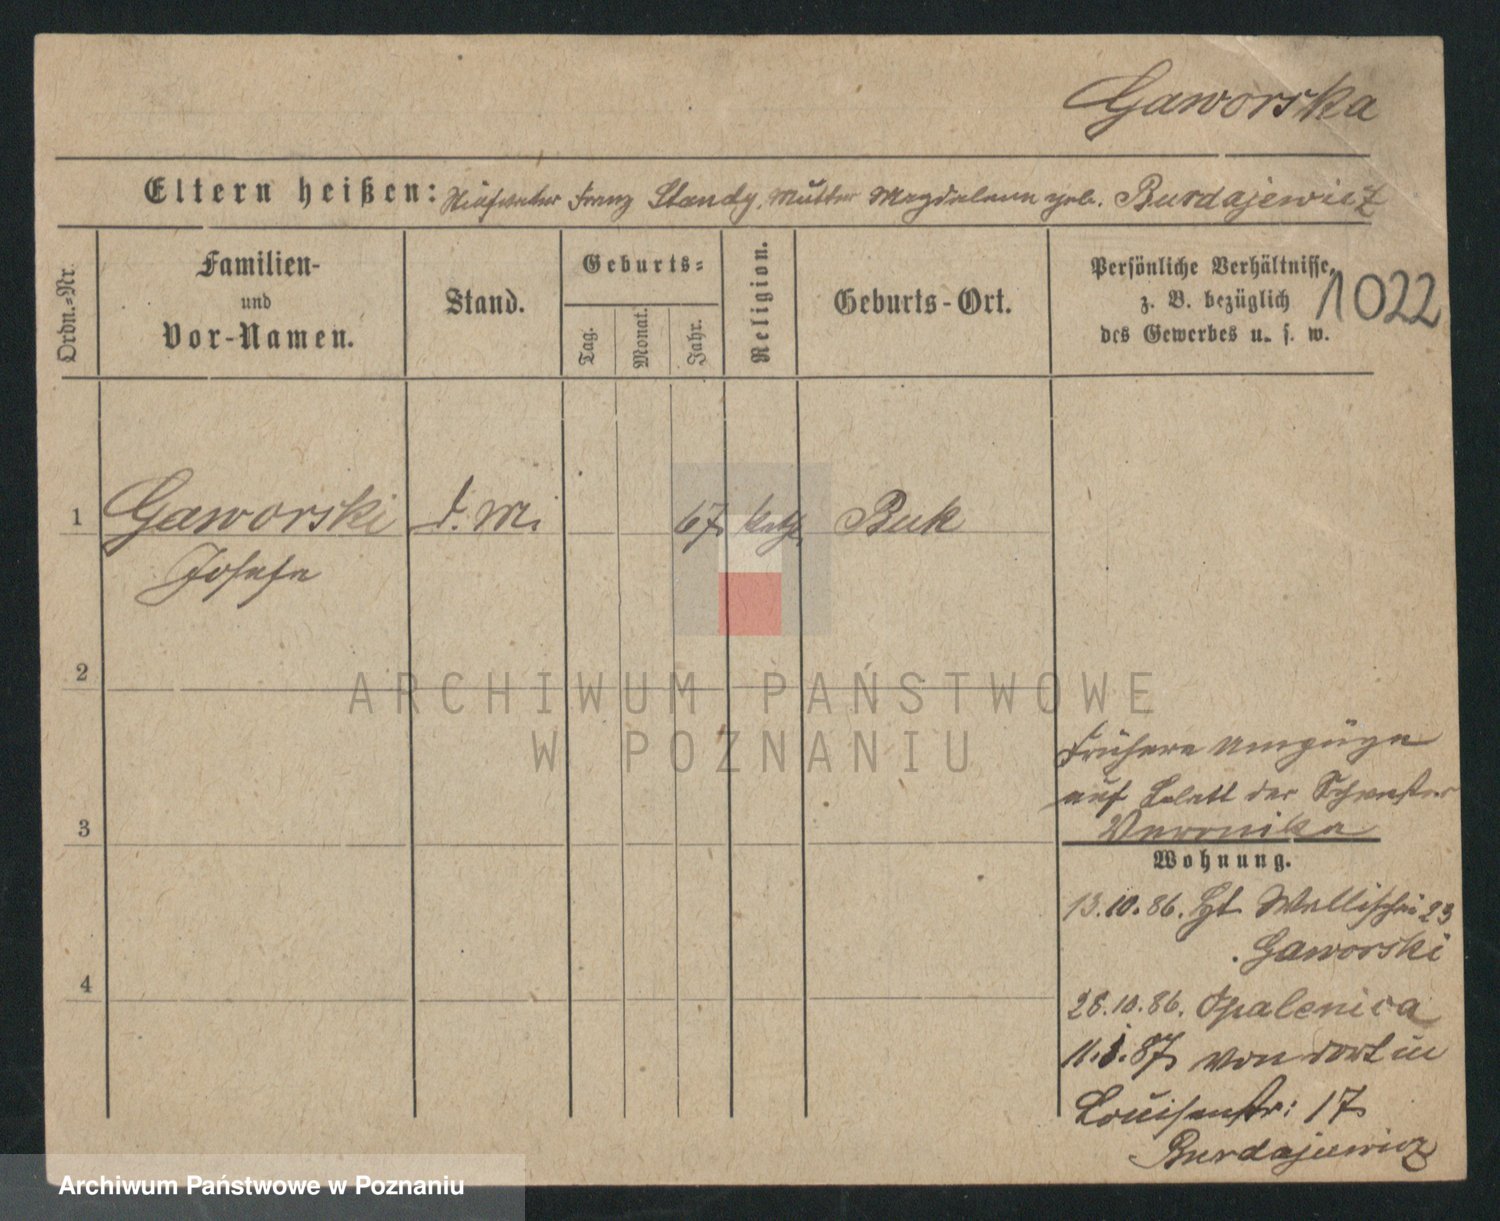 Gaworska
Eltern heißen: Stiefvater Franz Standy, Mutter Magdalena geb. Burdajewicz
Ordn.-Nr.
Familien-
und
Vor-Namen.
Stand.
Geburts-
Tag.
Monat.
Jahr.
Religion.
Geburts-Ort.
Persönliche Verhältnisse,
z. B. bezüglich
des Gewerbes u. s. w.
1022
1 Gaworski d. M. 67 kath. Buk
Josefa
2
ARCHIWUM PAŃSTWOWE
W POZNANIU
Frühere Umzüge
auf Blatt der Schwester
3 Veronika
Wohnung.
13.10.86. Wallischei 23
Gaworski
4
28.10.86. Opalenica
11.1.87 von dort in
Louisenstr: 17
Burdajewicz
Archiwum Państwowe w Poznaniu